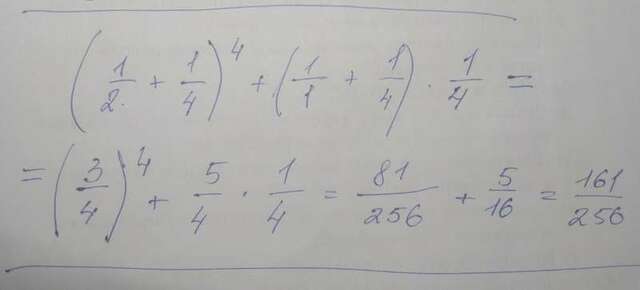 (1/2 + 1/4)^4 + (1/1 + 1/4) · 1/4 =
= (3/4)^4 + 5/4 · 1/4 = 81/256 + 5/16 = 161/256